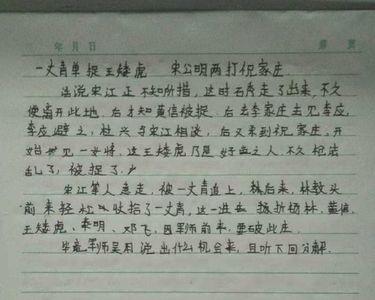 年 月 日
一丈青单捉王矮虎 宋公明两打祝家庄
话说宋江正不知所措，这时石秀走了出来，不久
便离开此地，后才知黄信被捉，后去李家庄去见李应，
李应避之，杜兴与宋江相谈，后又来到祝家庄，开
始出见一女将，这王矮虎乃是好色之人，不久枪法
乱了，被捉了，
宋江军人急走，被一丈青追上，林后来，林教头
前来轻松收拾了一丈青，这一进去 损折杨林，黄信，
王矮虎，秦明，邓飞，因军师前来，要破此庄，
毕竟军师吴用说出什么机会来，且听下回分解.